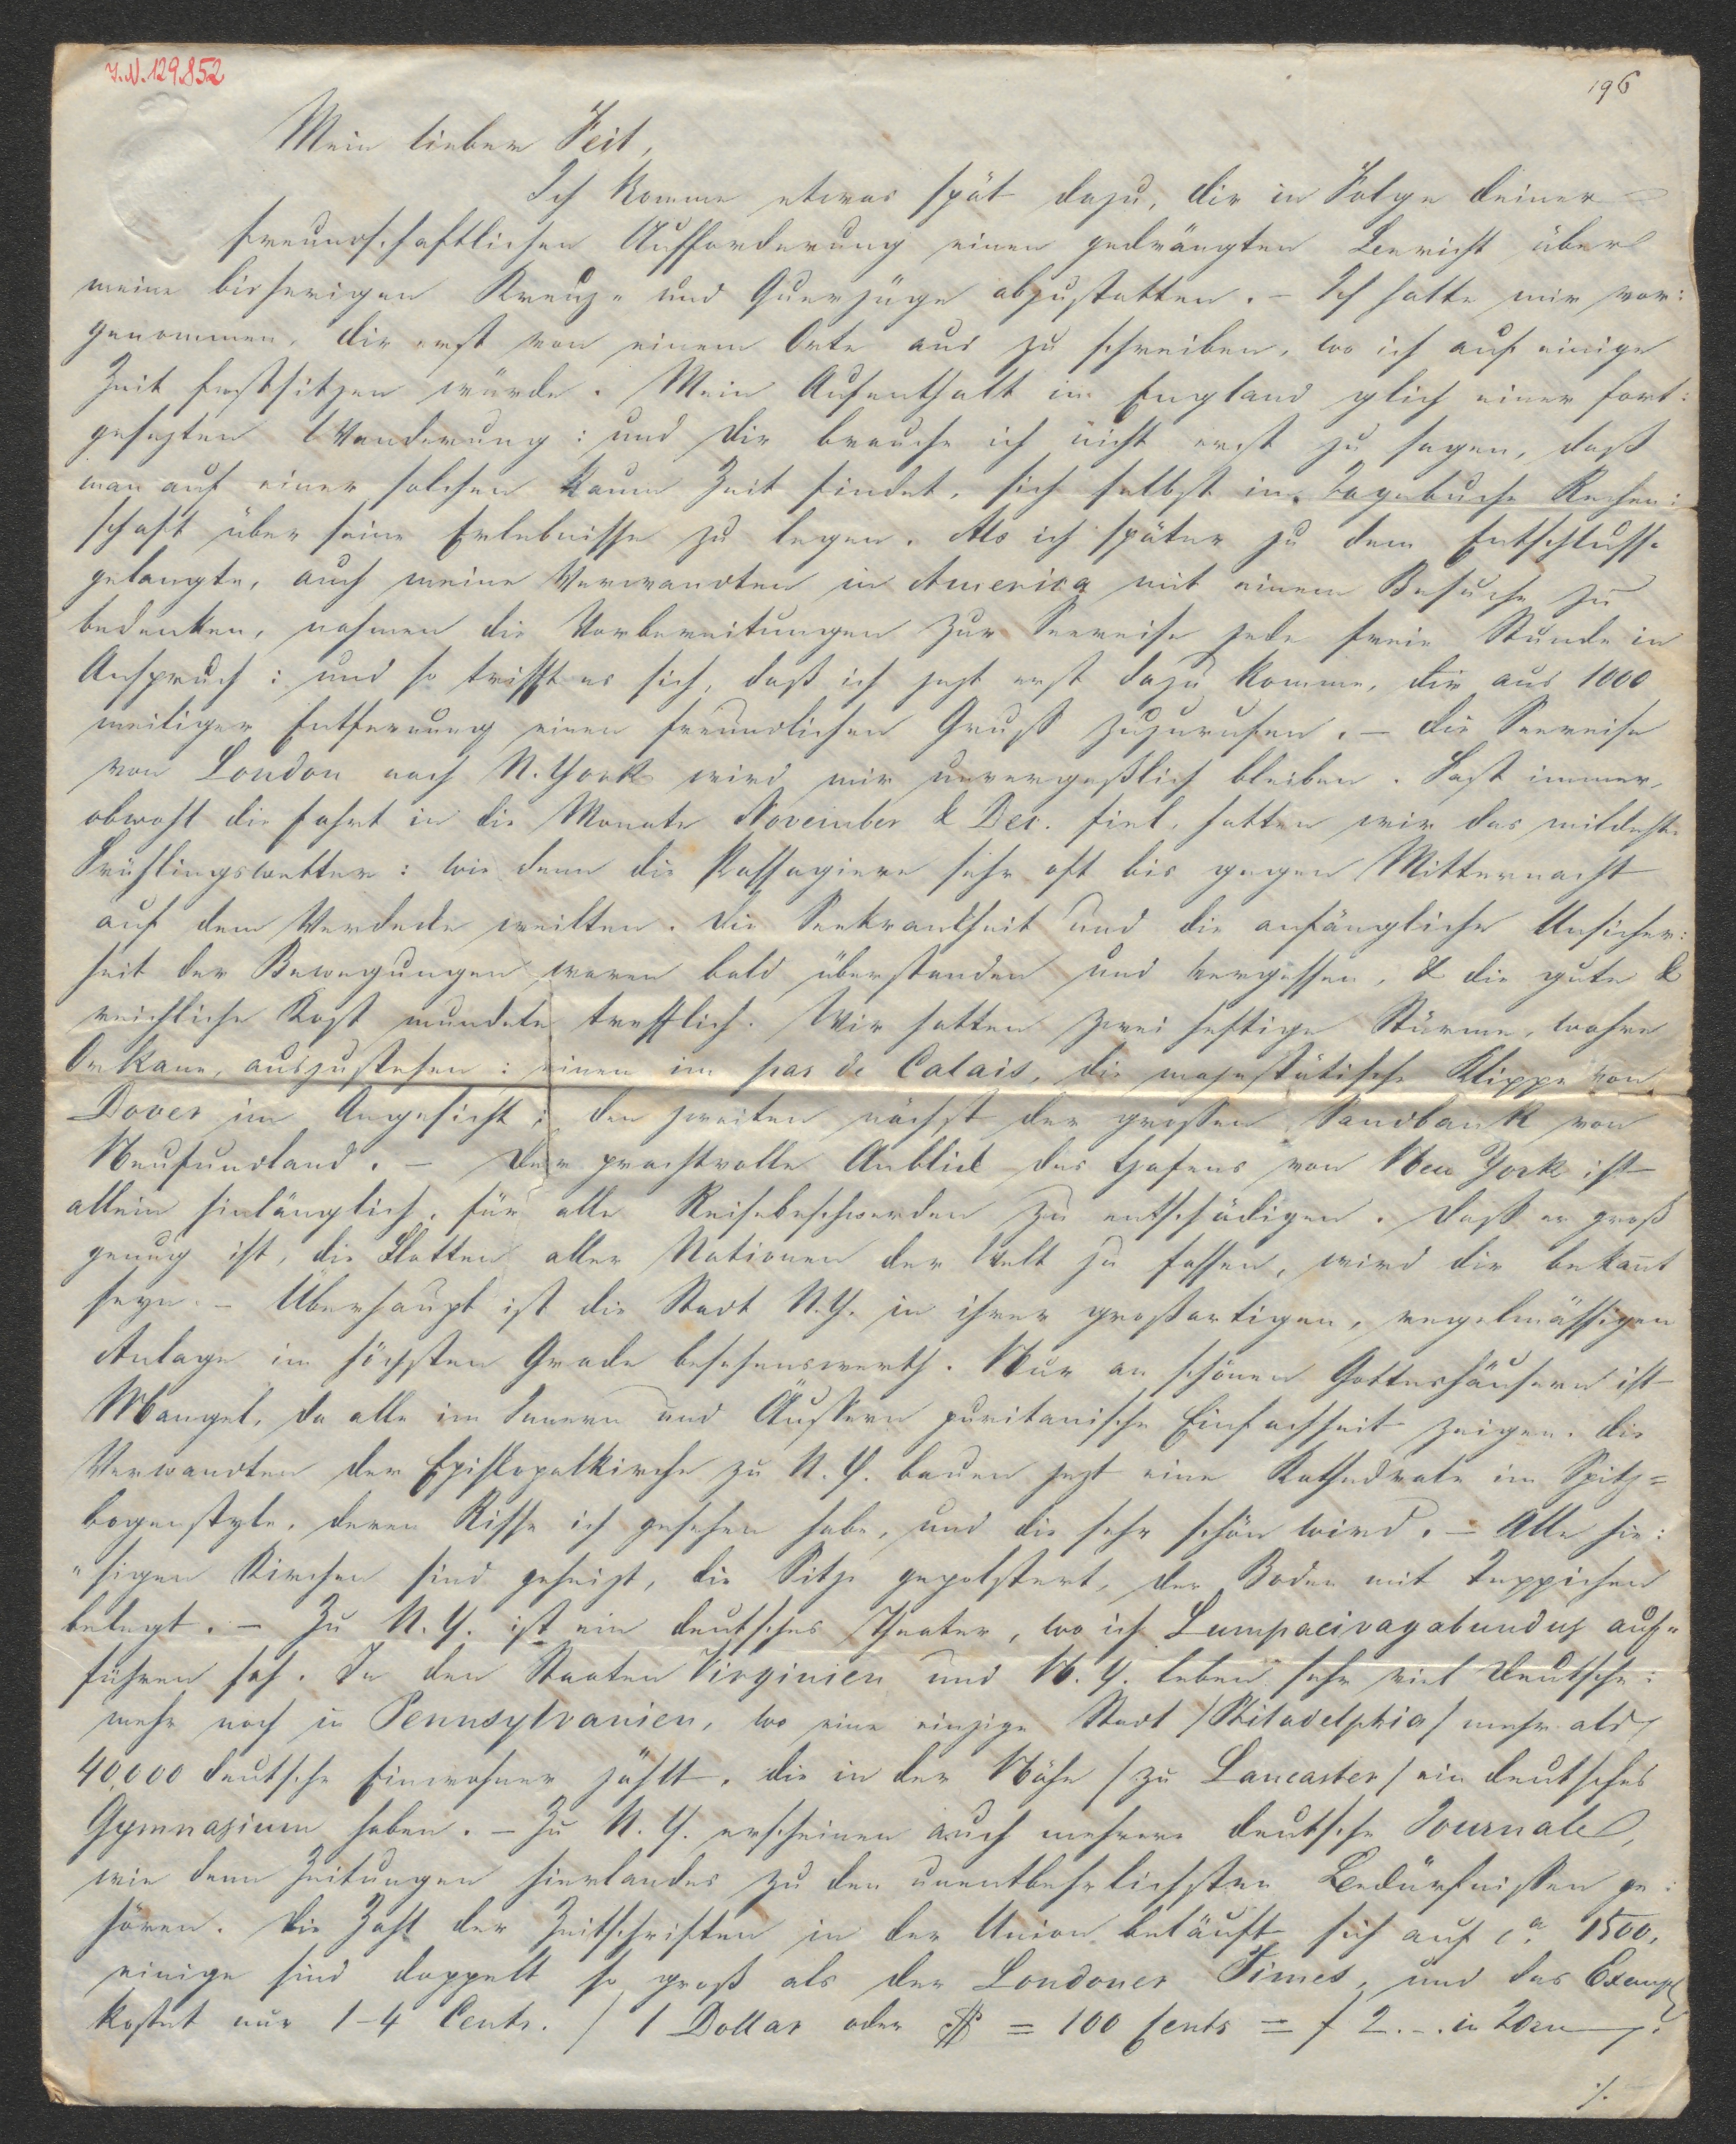 I.N. 129.852
196
Mein lieber Veit,
Ich komme etwas spät dazu, dir in Folge deiner
freundschaftlichen Aufforderung einen gedrängten Bericht über
meine bisherigen Kreuz- und Querzüge abzustatten. – Ich hatte mir vor:
genommen, dir erst von einem Orte aus zu schreiben, wo ich auf einige
Zeit festsitzen würde. Mein Aufenthalt in England glich einer fort:
gesezten Wanderung: und dir brauche ich nicht erst zu sagen, daß
man auf einer solchen kaum Zeit findet, sich selbst im Tagebuche Rechen:
schaft über seine Erlebnisse zu legen. Als ich später zu dem Entschlusse
gelangte, auch meine Verwandten in America mit einem Besuche zu
bedenken, nahmen die Vorbereitungen zur Seereise jede freie Stunde in
Anspruch: und so trifft es sich, daß ich jezt erst dazu komme, dir aus 1000
meiliger Entfernung einen freundlichen Gruß zuzurufen. – Die Seereise
von London nach N. York wird mir unvergeßlich bleiben. Fast immer,
obwohl die Fahrt in die Monate November & Dec. fiel, hatten wir das mildeste
Frühlingswetter: wie denn die Passagiere sehr oft bis gegen Mitternacht
auf dem Verdecke weilten. Die Seekrankheit und die anfängliche Unsicher:
heit der Bewegungen waren bald überstanden und vergessen, & die gute &
reichliche Kost mundete trefflich. Wir hatten zwei heftige Stürme, wahre
Orkane, auszustehen: einen im pas de Calais, die majestätische Klippe von
Dover im Angesicht: den zweiten nächst der grossen Sandbank von
Neufundland. – Der prachtvolle Anblick des Hafens von New York ist
allein hinlänglich, für alle Reisebeschwerden zu entschädigen. Daß er groß
genug ist, die Flotten aller Nationen der Welt zu fassen, wird dir bekan̄t
seyn. – Überhaupt ist die Stadt N.Y. in ihrer großartigen, regelmässigen
Anlage im höchsten Grade besehenswerth. Nur an schönen Gotteshäusern ist
Mangel, da alle im Innern und Äussern puritanische Einfachheit zeigen. Die
Verwandten der Episkopalkirche zu N.Y. bauen jezt eine Kathedrale im Spitz=
bogenstyle, deren Risse ich gesehen habe, und die sehr schön wird. – Alle hie:
"sigen Kirchen sind geheizt, die Sitze gepolstert, der Boden mit Teppichen
belegt. – Zu N.Y. ist ein deutsches Theater, wo ich Lumpacivagabundus auf"
führen sah. In den Staaten Virginien und N.Y. leben sehr viel Deutsche:
mehr noch in Pennsylvanien, wo eine einzige Stadt /Philadelphia/ mehr als
40,000 deutsche Einwohner zählt, die in der Nähe /zu Lancaster/ ein deutsches
Gymnasium haben. – Zu N.Y. erscheinen auch mehrere deutsche Journale,
wie denn Zeitungen hierlandes zu den unentbehrlichsten Bedürfnissen ge:
hören. Die Zahl der Zeitschriften in der Union beläuft sich auf ca. 1500,
einige sind doppelt so groß als der Londoner Times, und das Exempl
kostet nur 1–4 Cents. / 1 Dollar oder $ = 100 Cents = f 2.-. in
./.